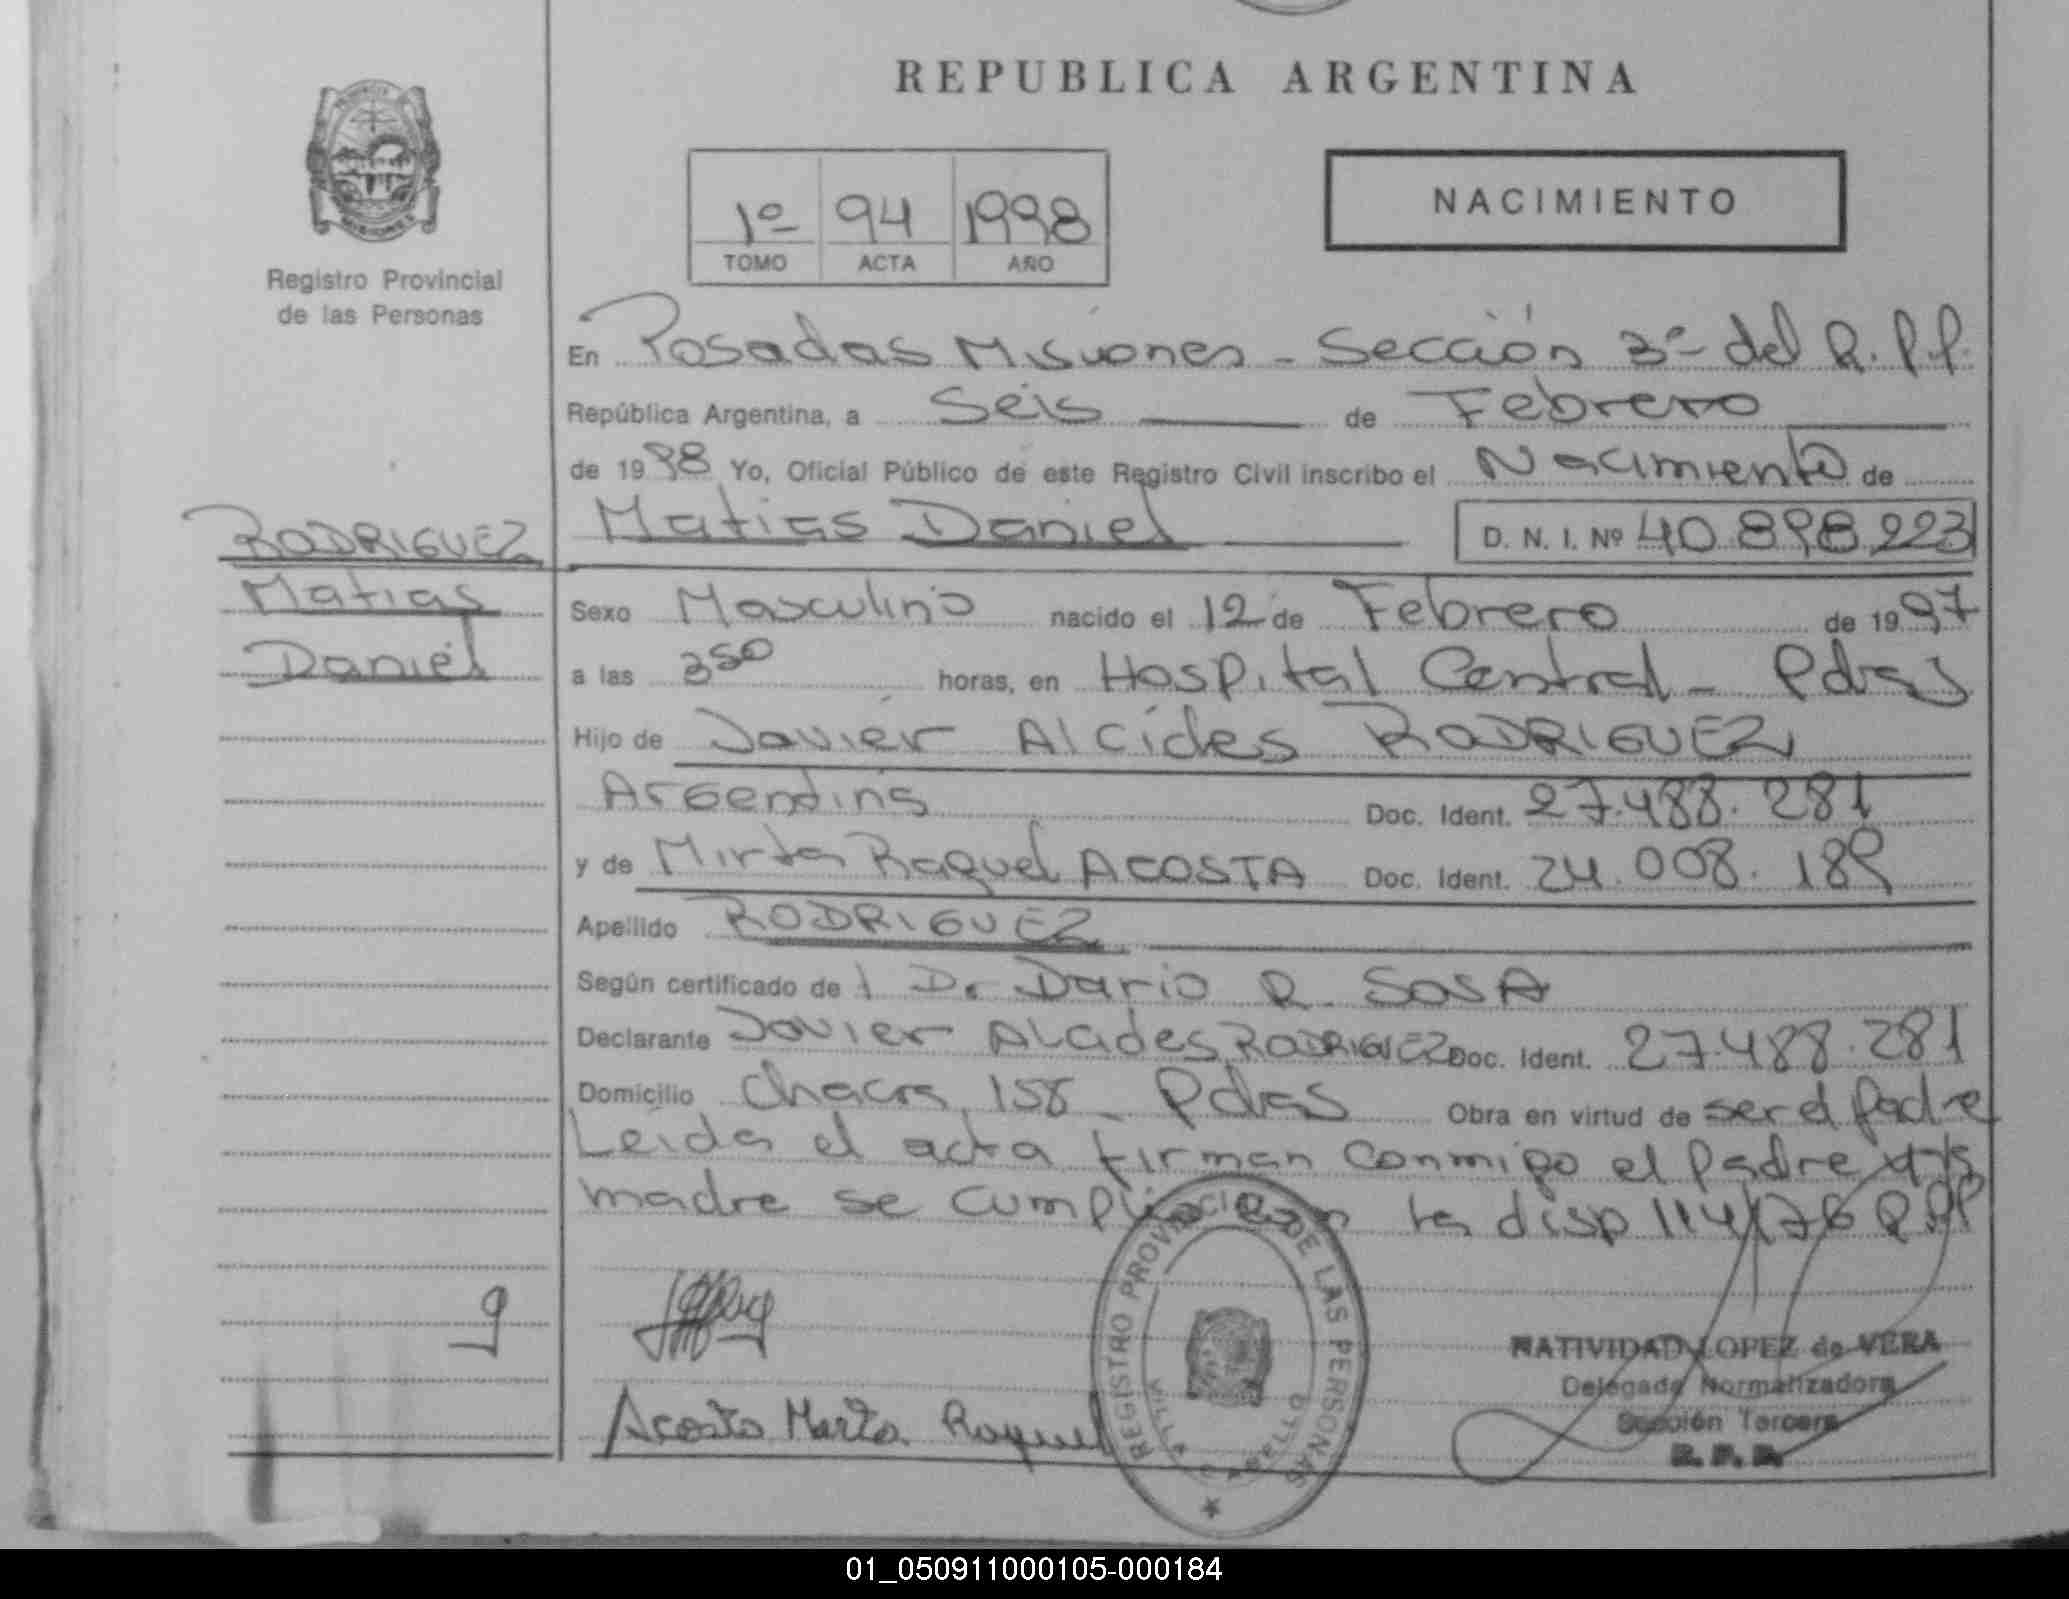 REPUBLICA ARGENTINA
1º 94 1998
TOMO ACTA AÑO
NACIMIENTO
Registro Provincial
de las Personas
En Posadas Misiones - Sección 3º del R.P.P.
República Argentina, a Seis de Febrero
de 1998 Yo, Oficial Público de este Registro Civil inscribo el Nacimiento de
RODRIGUEZ
Matias
Daniel
Matias Daniel D. N. I. Nº 40.898.223
Sexo Masculino nacido el 12 de Febrero de 1997
a las 350 horas, en Hospital Central - Pdas
Hijo de Javier Alcides RODRIGUEZ
Argentino Doc. Ident. 27.488.281
y de Mirta Raquel ACOSTA Doc. Ident. 24.008.189
Apellido RODRIGUEZ
Según certificado de l Dr Dario R. SOSA
Declarante Javier Alcides RODRIGUEZ Doc. Ident. 27.488.281
Domicilio Chacra 158 - Pdas Obra en virtud de ser el padre
Leida el acta firman conmigo el padre y la
madre se cumplio con la disp 114/76 RPP
Acosta Mirta Raquel
REGISTRO PROVINCIAL DE LAS PERSONAS
VILLA CABELLO
NATIVIDAD LOPEZ de VERA
Delegada Normalizadora
Sección Tercera
R. P. P.
01_050911000105-000184